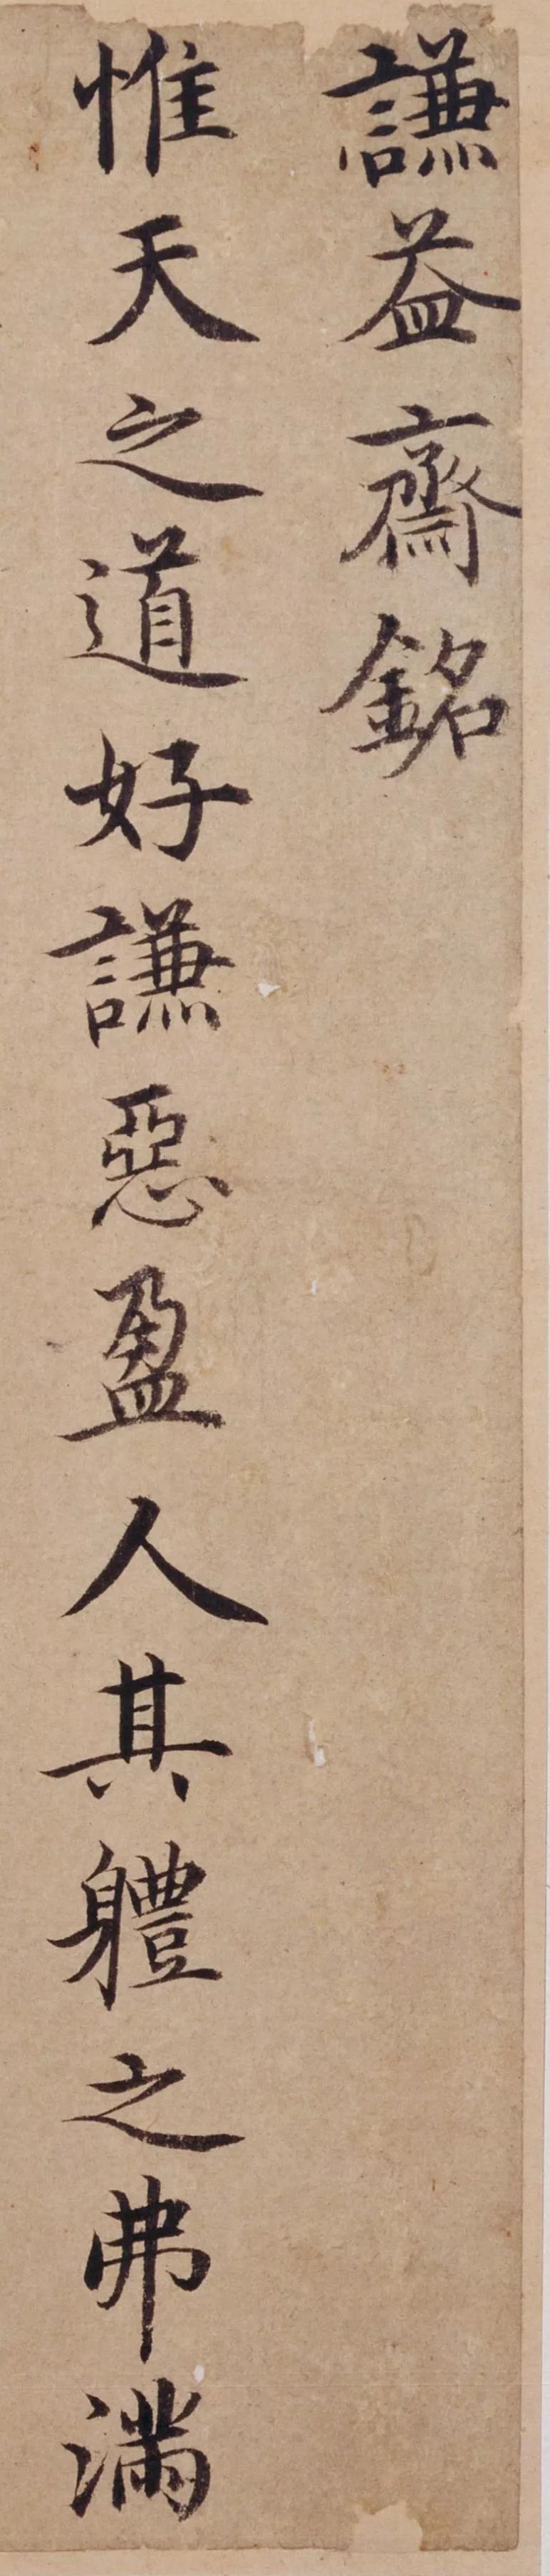 謙益齋銘
惟天之道好謙惡盈人其軆之弗滿